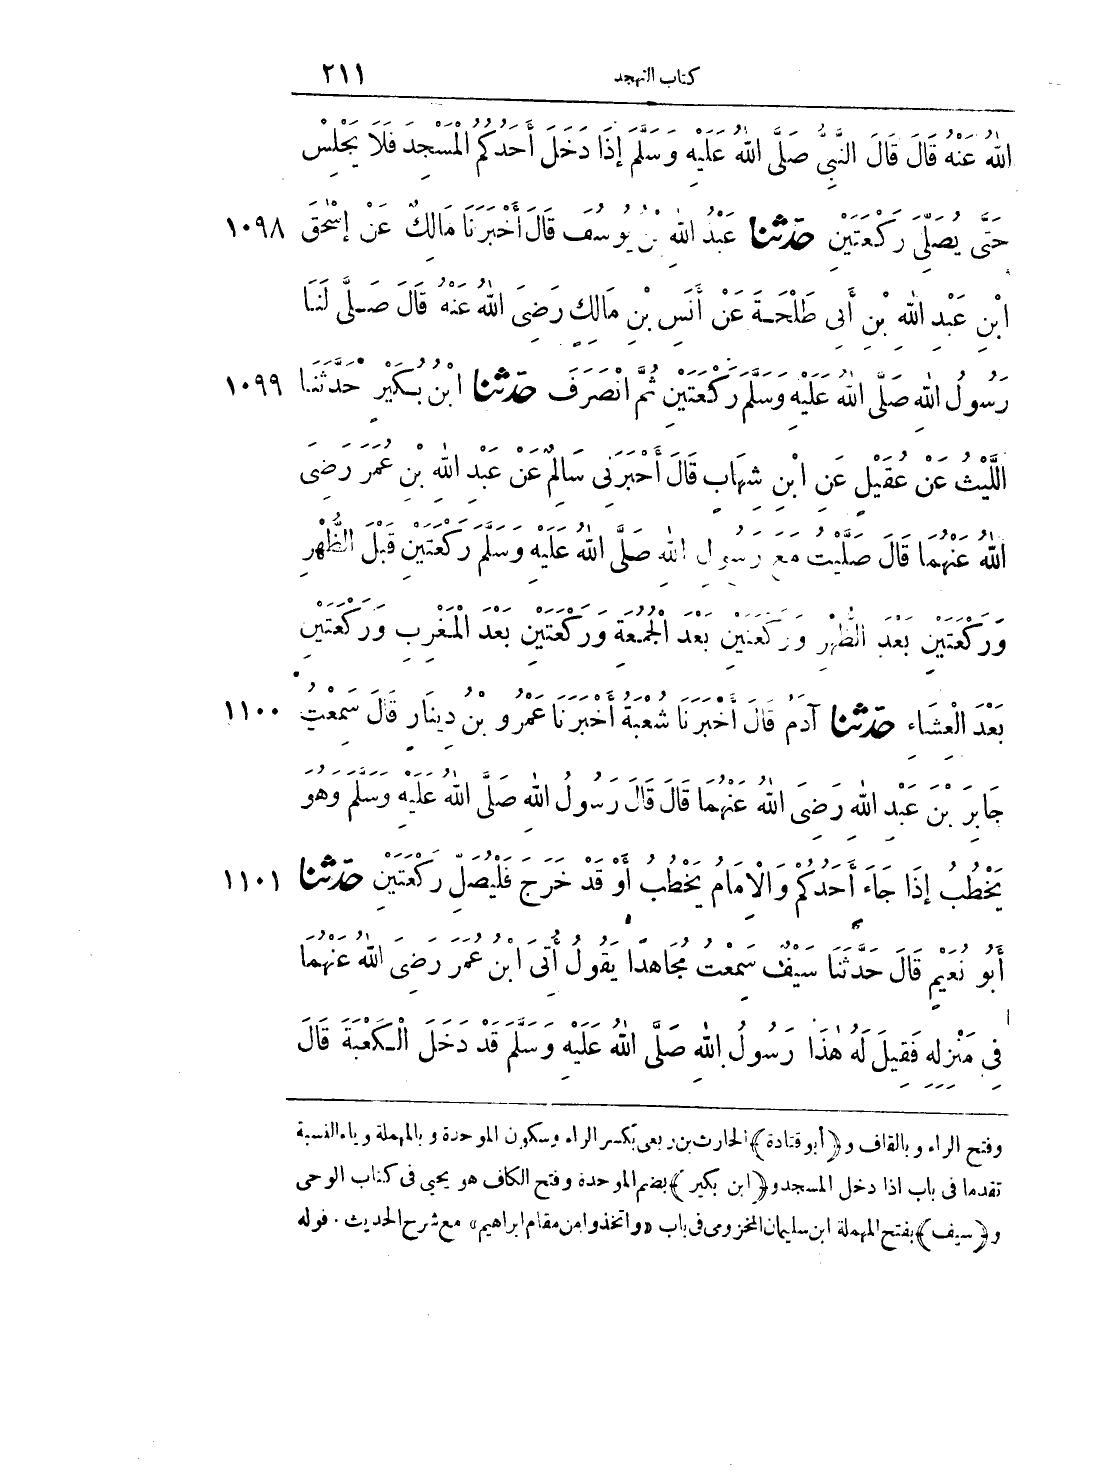 كتاب التهجد ٢١١
اللهُ عَنْهُ قَالَ قَالَ النَّبِيُّ صَلَّى اللهُ عَلَيْهِ وَسَلَّمَ إِذَا دَخَلَ أَحَدُكُمُ الْمَسْجِدَ فَلَا يَجْلِسْ
حَتَّى يُصَلِّيَ رَكْعَتَيْنِ حَدَّثَنَا عَبْدُ اللهِ بْنُ يُوسُفَ قَالَ أَخْبَرَنَا مَالِكٌ عَنْ إِسْحٰقَ ١٠٩٨
ابْنِ عَبْدِ اللهِ بْنِ أَبِي طَلْحَةَ عَنْ أَنَسِ بْنِ مَالِكٍ رَضِيَ اللهُ عَنْهُ قَالَ صَلَّى لَنَا
رَسُولُ اللهِ صَلَّى اللهُ عَلَيْهِ وَسَلَّمَ رَكْعَتَيْنِ ثُمَّ انْصَرَفَ حَدَّثَنَا ابْنُ بُكَيْرٍ حَدَّثَنَا ١٠٩٩
اللَّيْثُ عَنْ عُقَيْلٍ عَنِ ابْنِ شِهَابٍ قَالَ أَخْبَرَنِي سَالِمٌ عَنْ عَبْدِ اللهِ بْنِ عُمَرَ رَضِيَ
اللهُ عَنْهُمَا قَالَ صَلَّيْتُ مَعَ رَسُولِ اللهِ صَلَّى اللهُ عَلَيْهِ وَسَلَّمَ رَكْعَتَيْنِ قَبْلَ الظُّهْرِ
وَرَكْعَتَيْنِ بَعْدَ الظُّهْرِ وَرَكْعَتَيْنِ بَعْدَ الْجُمُعَةِ وَرَكْعَتَيْنِ بَعْدَ الْمَغْرِبِ وَرَكْعَتَيْنِ
بَعْدَ الْعِشَاءِ حَدَّثَنَا آدَمُ قَالَ أَخْبَرَنَا شُعْبَةُ أَخْبَرَنَا عَمْرُو بْنُ دِينَارٍ قَالَ سَمِعْتُ ١١٠٠
جَابِرَ بْنَ عَبْدِ اللهِ رَضِيَ اللهُ عَنْهُمَا قَالَ قَالَ رَسُولُ اللهِ صَلَّى اللهُ عَلَيْهِ وَسَلَّمَ وَهُوَ
يَخْطُبُ إِذَا جَاءَ أَحَدُكُمْ وَالْإِمَامُ يَخْطُبُ أَوْ قَدْ خَرَجَ فَلْيُصَلِّ رَكْعَتَيْنِ حَدَّثَنَا ١١٠١
أَبُو نُعَيْمٍ قَالَ حَدَّثَنَا سَيْفٌ سَمِعْتُ مُجَاهِدًا يَقُولُ أُتِيَ ابْنُ عُمَرَ رَضِيَ اللهُ عَنْهُمَا
فِي مَنْزِلِهِ فَقِيلَ لَهُ هٰذَا رَسُولُ اللهِ صَلَّى اللهُ عَلَيْهِ وَسَلَّمَ قَدْ دَخَلَ الْكَعْبَةَ قَالَ
وفتح الراء وبالقاف و﴿أبو قتادة﴾ الحارث بن ربعي بكسر الراء وسكون الموحدة وبالمهملة وياء النسبة
تقدما في باب اذا دخل المسجد و﴿ابن بكير﴾ بضم الموحدة وفتح الكاف هو يحيى في كتاب الوحي
و﴿سيف﴾ بفتح المهملة ابن سليمان المخزومي في باب «واتخذوا من مقام ابراهيم» مع شرح الحديث. قوله